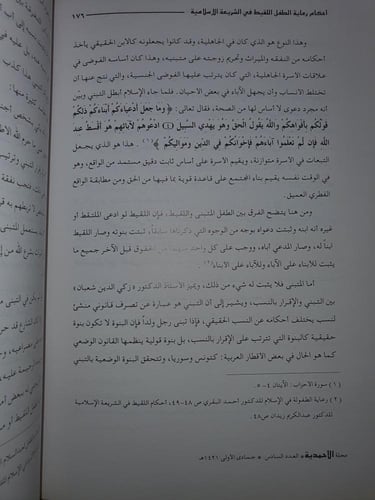 أحكام رعاية الطفل اللقيط في الشريعة الإسلامية ١٧٦
وهذا النوع هو الذي كان في الجاهلية، وقد كانوا يجعلونه كالابن الحقيقي يأخذ
أحكامه من النفقة والميراث وتحريم زوجته على متبنيه، وهذا كان أساسه الفوضى في
علاقات الأسرة الجاهلية، التي كان يترتب عليها الفوضى الجنسية، والتي نتج عنها أن
تختلط الأنساب وأن يجهل الآباء في بعض الأحيان. فلما جاء الإسلام أبطل التبني وبيَّن
أنه مجرد دعوى لا أساس لها من الصحة، فقال تعالى: ﴿وما جعل أدعياءكم أبناءكم ذلكم
قولكم بأفواهكم والله يقول الحق وهو يهدي السبيل (٤) ادعوهم لآبائهم هو أقسط عند
الله فإن لم تعلموا آباءهم فإخوانكم في الدين ومواليكم﴾(١). هذا هو الذي يجعل
التبعات في الأسرة متوازنة، ويقيم الأسرة على أساس ثابت دقيق مستمد من الواقع، وهو
في الوقت نفسه يقيم بناء المجتمع على قاعدة قوية بما فيها من الحق ومن مطابقة الواقع
الفطري العميق.
ومن هنا يتضح الفرق بين الطفل المتبنى واللقيط، فإن اللقيط لو ادعى الملتقط أو
غيره أنه ابنه وثبتت دعواه بوجه من الوجوه التي ذكرناها سابقاً، ثبتت بنوته وصار اللقيط
ابناً له، وصار المدعي أباه، ووجب على كل واحد منهما من الحقوق قبل الآخر جميع ما
يثبت للأبناء على الآباء وللآباء على الأبناء(٢).
أما المتبنى فلا يثبت له شيء من ذلك، ويميز الأستاذ الدكتور «زكي الدين شعبان»
بين التبني والإقرار بالنسب، ويشير إلى أن التبني هو عبارة عن تصرف قانوني منشئ
لنسب يختلف أحكامه عن النسب الحقيقي، فإذا تبنى رجل ولداً فإن البنوة لا تكون بنوة
حقيقية كالبنوة التي تترتب على الإقرار بالنسب، بل بنوة قولية ينظمها القانون الوضعي
كما هو الحال في بعض الأقطار العربية: كتونس وسوريا، وتتحقق البنوة الوضعية بالتبني
(١) سورة الأحزاب: الآيتان ٤ - ٥.
(٢) رعاية الطفولة في الإسلام للدكتور أحمد البقري ص ٤٨-٤٩، أحكام اللقيط في الشريعة الإسلامية
للدكتور عبدالكريم زيدان ص٤٨.
مجلة الأحمدية * العدد السادس * جمادى الأولى ١٤٢١هـ